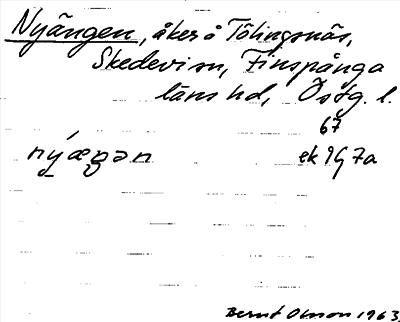 Nyängen, åker å Tölingsnäs,
Skedevi sn, Finspånga
läns hd, Östg. l.
67
ný̱æŋən ek 9G7a
Bernt Olsson 1963.